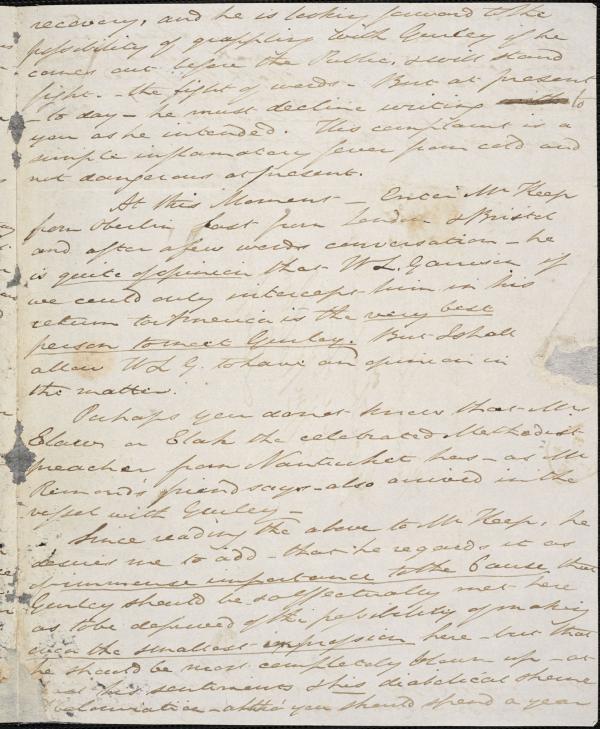 recovery, and he is looking forward to the
possibility of grappling with Gurley if he
comes out before the Public, & will stand
fight. - the fight of words - But at present
- to day - he must decline writing to
you as he intended. His complaint is a
simple inflamatory fever from cold and
not dangerous at present.
At this Moment - Enter Mr Keep
from Oberlin last from London & Bristol
and after a few words conversation - he
is quite of opinion that W L. Garrison if
we could only intercept him in his
return to America is the very best
person to meet Gurley. But I shall
allow W L G. to have an opinion in
the matter.
Perhaps you do not know that Mrs
Elaw or Elah the celebrated Methodist
preacher from Nantucket has - as Mr
Remond's friend says - also arrived in the
vessel with Gurley -
Since reading the above to Mr Keep, he
desires me to add - that he regards it as
immense importance to the Cause that
Gurley should be so effectually met here
as to be deprived of the possibility of making
even the smallest impression here - but that
he should be most completely blown up - at
sentiments & his diabolical scheme
Colonization - altho' you should spend a year